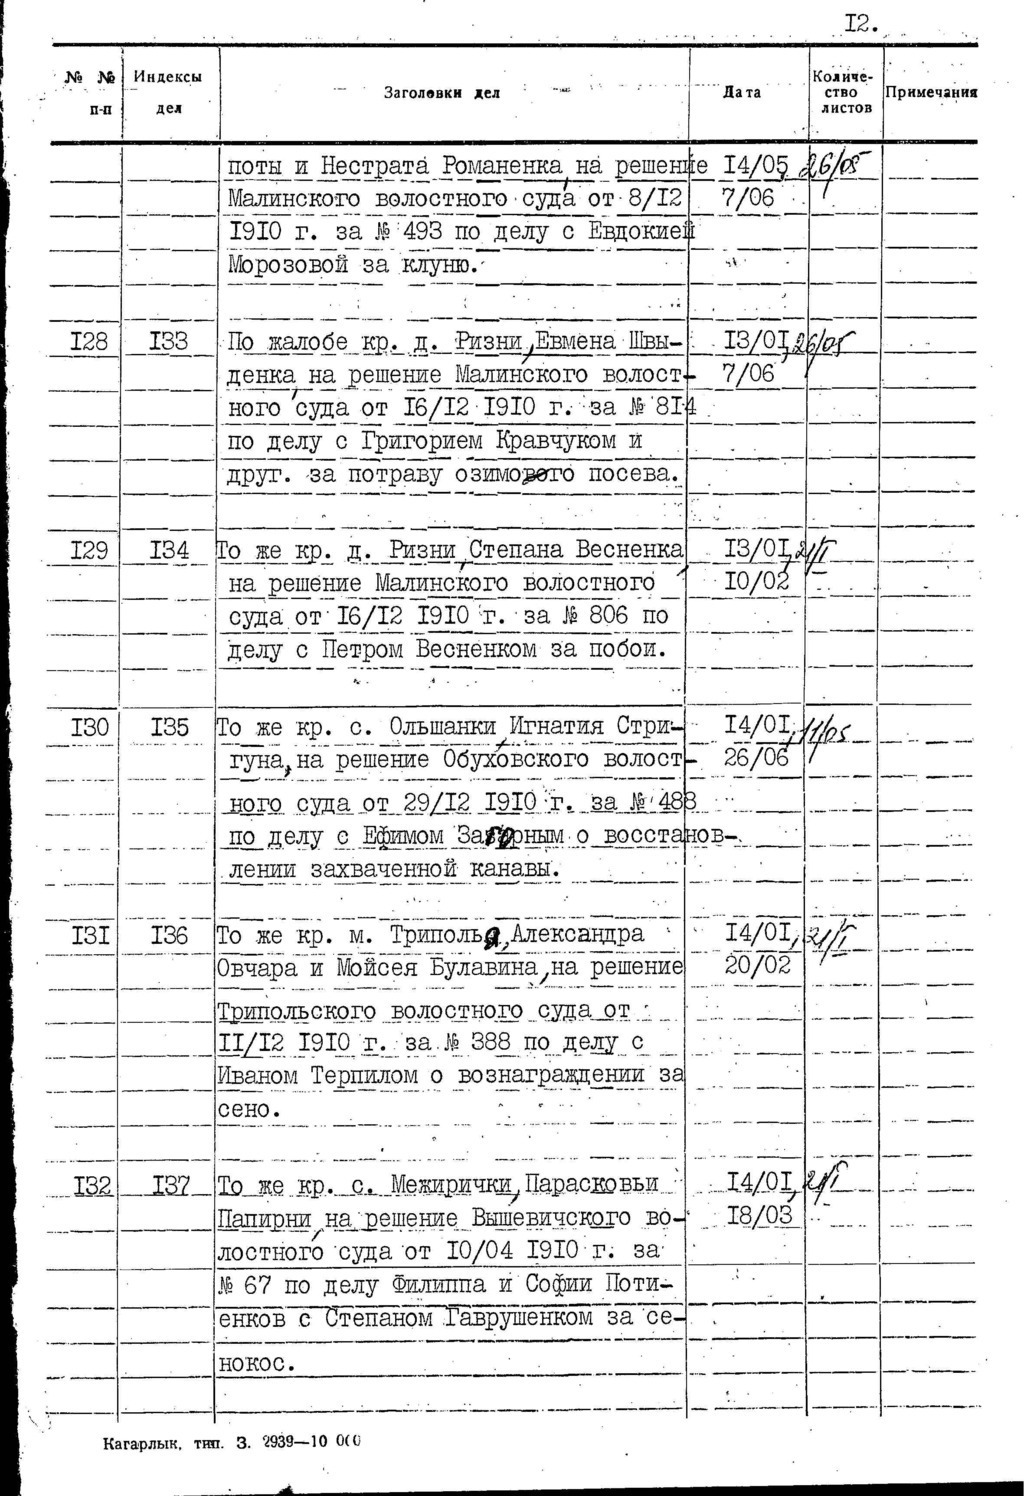 I2.
№ №
п-п
Индексы
дел
Заголовки дел
Дата
Количе-
ство
листов
Примечания
поты и Нестрата Романенка, на решение 14/05, 26/05
Малинского волостного суда от 8/I2 7/06
I9I0 г. за № 493 по делу с Евдокией
Морозовой за клуню.
I28 I33 По жалобе кр. д. Ризни, Евмена Швы- I3/0I, 26/05
денка, на решение Малинского волост- 7/06
ного суда от I6/I2 I9I0 г. за № 8I4
по делу с Григорием Кравчуком и
друг. за потраву озимового посева.
I29 I34 То же кр. д. Ризни, Степана Весненка I3/0I, 21/I
на решение Малинского волостного I0/02
суда от I6/I2 I9I0 г. за № 806 по
делу с Петром Весненком за побои.
I30 I35 То же кр. с. Ольшанки, Игнатия Стри- I4/0I, 11/05
гуна, на решение Обуховского волост- 26/06
ного суда от 29/I2 I9I0 г. за № 488
по делу с Ефимом Загорным о восстанов-
лении захваченной канавы.
I3I I36 То же кр. м. Триполья, Александра I4/0I, 21/I
Овчара и Мойсея Булавина, на решение 20/02
Трипольского волостного суда от
II/I2 I9I0 г. за № 388 по делу с
Иваном Терпилом о вознаграждении за
сено.
I32 I37 То же кр. с. Межирички, Парасковьи I4/0I, 21/I
Папирни, на решение Вышевичского во- I8/03
лостного суда от I0/04 I9I0 г. за
№ 67 по делу Филиппа и Софии Поти-
енков с Степаном Гаврушенком за се-
нокос.
Кагарлык, тип. З. 2939—10 000